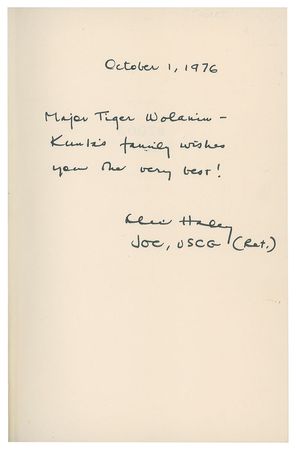 October 1, 1976
Major Tiger Wolanin –
Kunta's family wishes
you the very best!
Alex Haley
JOC, USCG (Ret.)